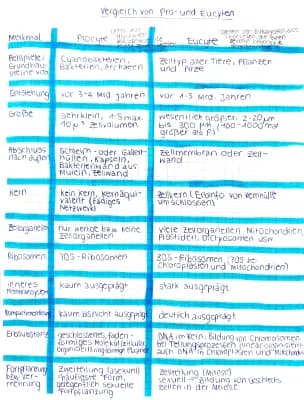 Vergleich von Pro- und Eucyten
Merkmal
Procyte
Eucyte
Beispiele/
Grundbau-
steine von
Cyanobakterien,
Bakterien, Archaeen
Zelltyp aller Tiere, Pflanzen
und Pilze
Entstehung
vor 3-4 Mrd. Jahren
vor 1,5 Mrd. Jahren
Größe
sehr klein, 1-5 max.
10 µm³ Zellvolumen
wesentlich größer, 2-20µm
bis 300 µm (100-1000 mal
größer als P)
Abschluss
nach außen
Schleim- oder Gallert-
hüllen, Kapseln,
Bakterienwand aus
Murein, Zellwand
Zellmembran oder Zell-
wand
Kern
kein Kern, Kernäqui-
valent (fädiges
Netzwerk)
Zellkern (Erbinfo von Kernhülle
umschlossen)
Zellorganellen
nur wenige bzw. keine
Zellorganellen
viele Zellorganellen, Mitochondrien,
Plastiden, Dictyosomen usw.
Ribosomen
70S-Ribosomen
80S-Ribosomen (70S bei
Chloroplasten und Mitochondrien)
inneres
Membransystem
kaum ausgeprägt
stark ausgeprägt
Kompartimentierung
kaum bis nicht ausgeprägt
deutlich ausgeprägt
Erbsubstanz
geschlossenes, faden-
förmiges Molekül, zirkulär
organisiert, ringförmige Plasmide
DNA im Kern; Bildung von Chromosomen
bei Teilungsprozessen (linear organisiert)
auch DNA in Chloroplasten und Mitochondrien
Fortpflanzung
bzw. Ver-
mehrung
Zweiteilung (asexuell)
häufigste Form,
gelegentlich sexuelle
Fortpflanzung
Zellteilung (Mitose)
sexuell → Bildung von Geschlechts-
zellen in der Meiose